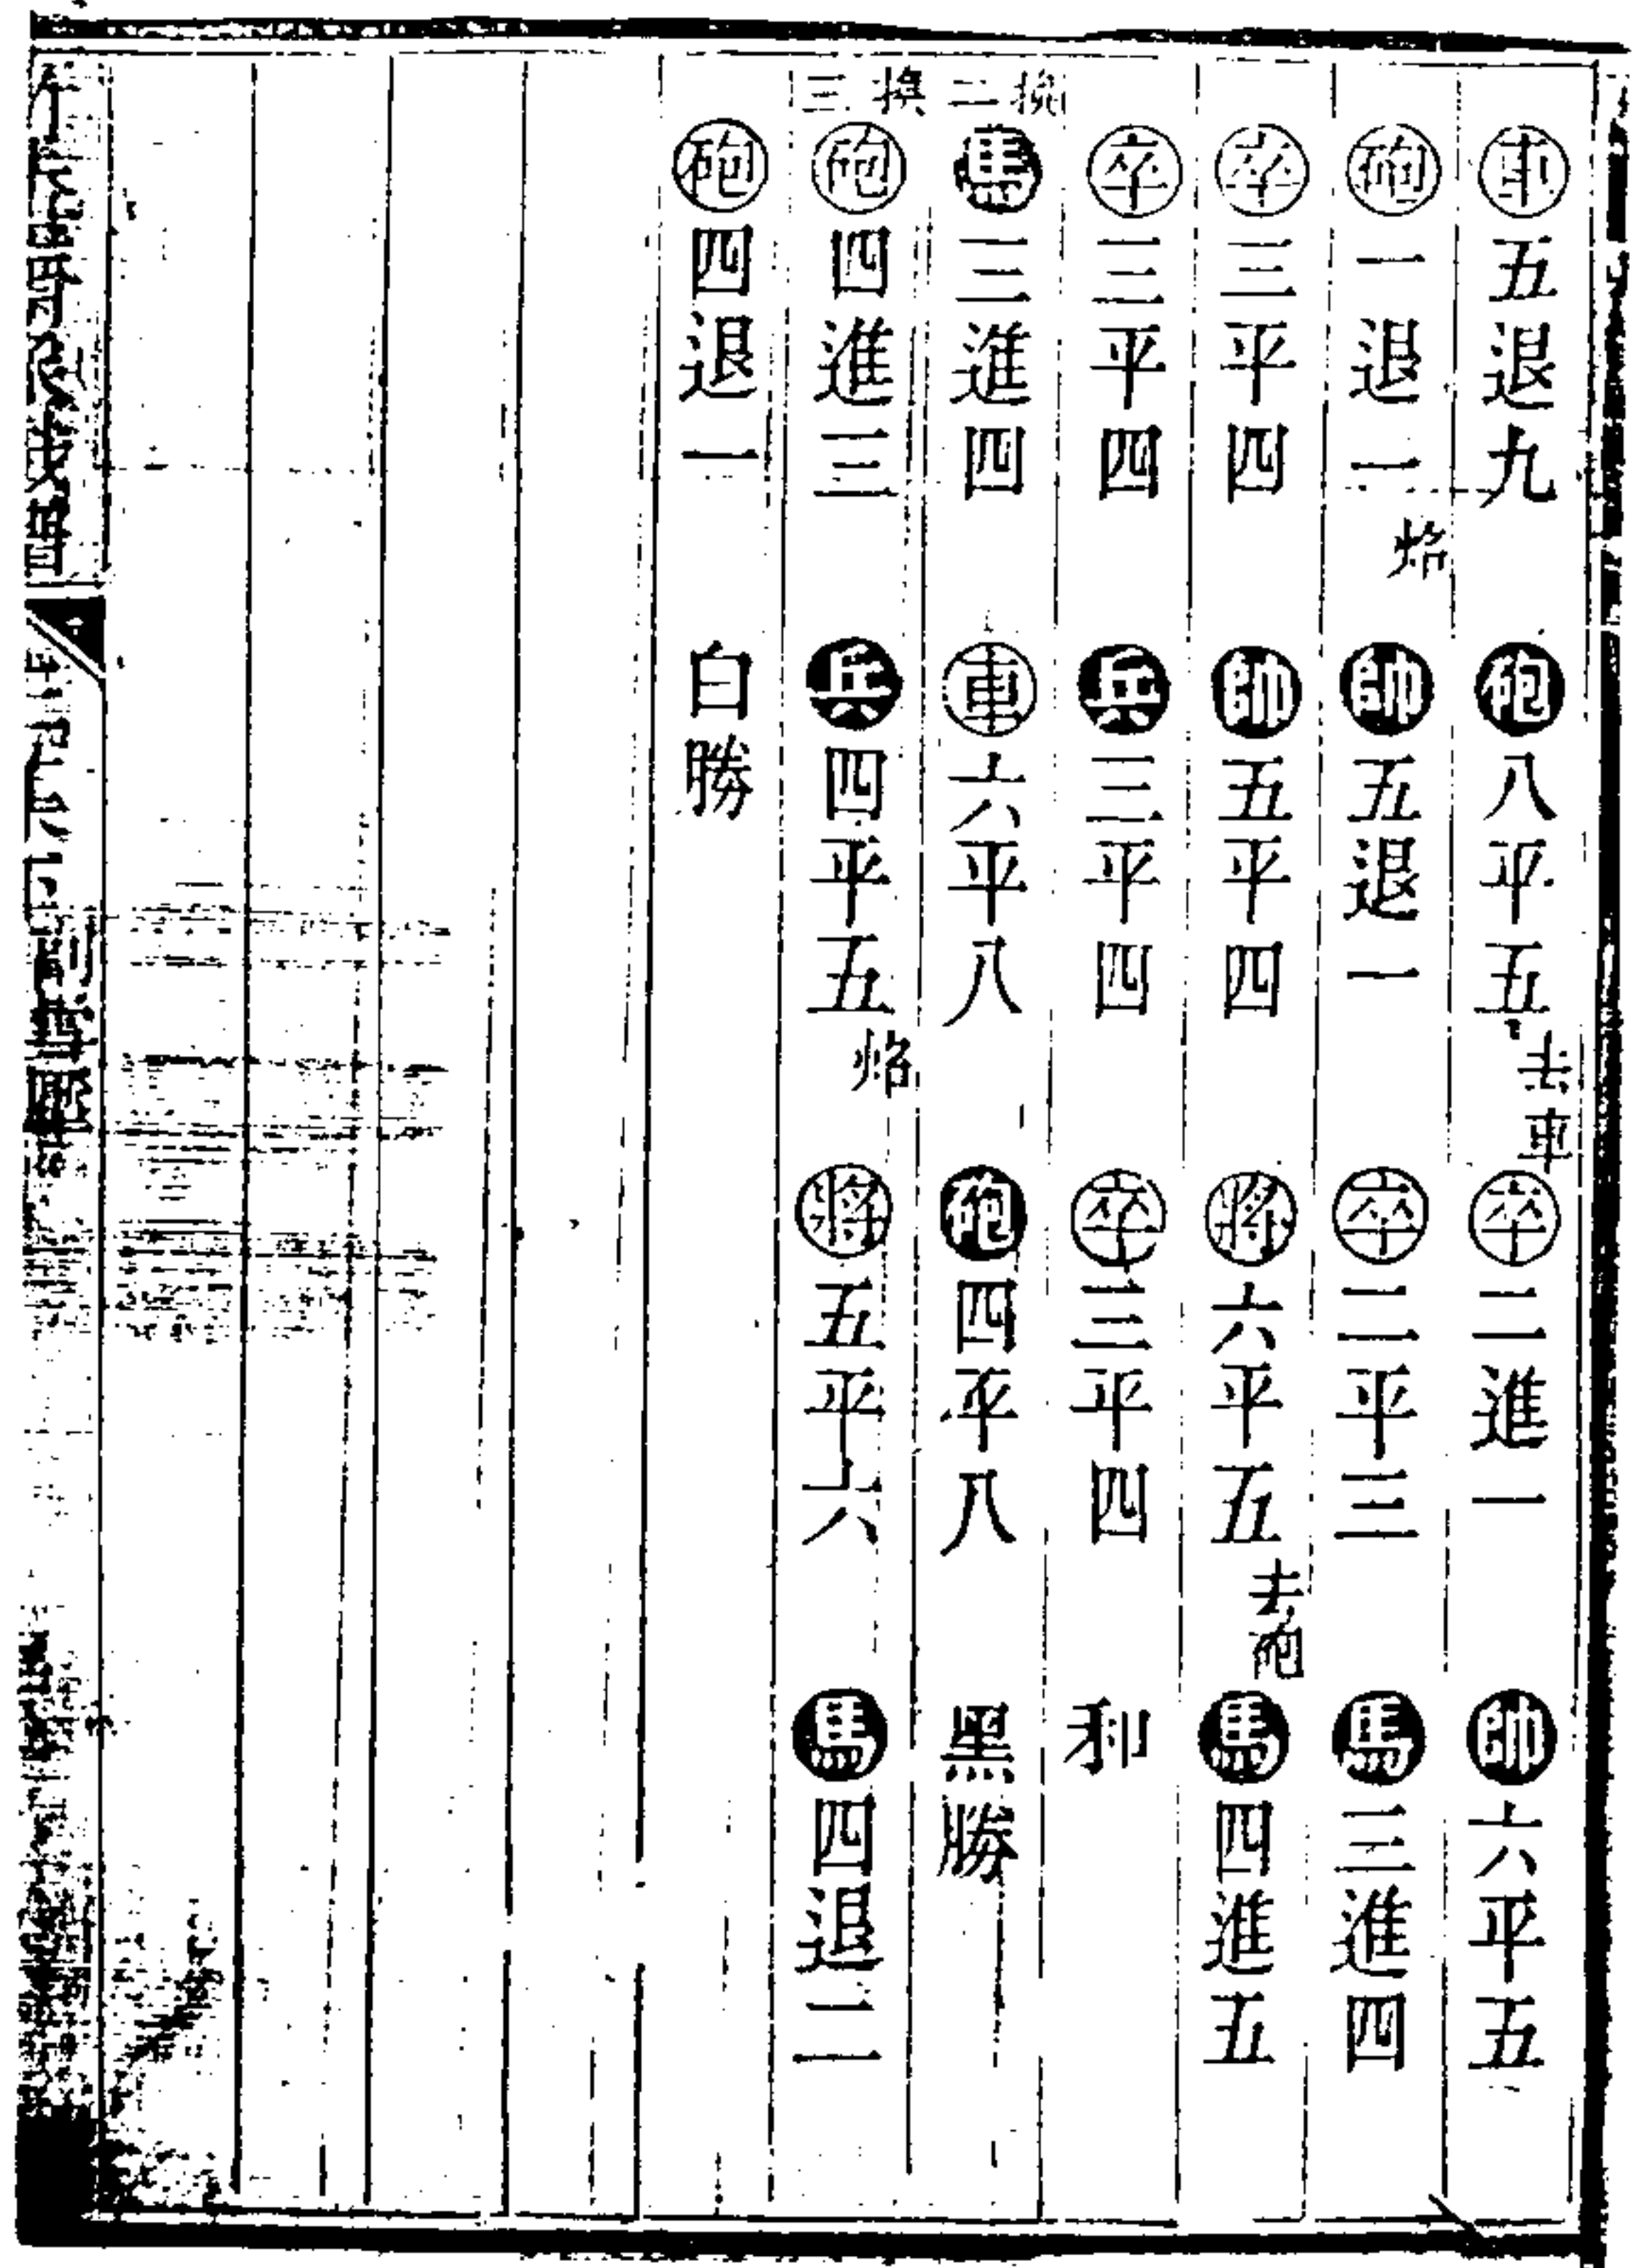 車五退九 砲八平五 去車 卒二進一 帥六平五
砲一退一 烙 帥五退一 卒二平三 馬三進四
卒三平四 帥五平四 將六平五 去砲 馬四進五
卒三平四 兵三平四 卒三平四 和
二 馬三進四 車六平八 砲四平八 黑勝
三 砲四進三 兵四平五 烙 將五平六 馬四退二
砲四退一 白勝